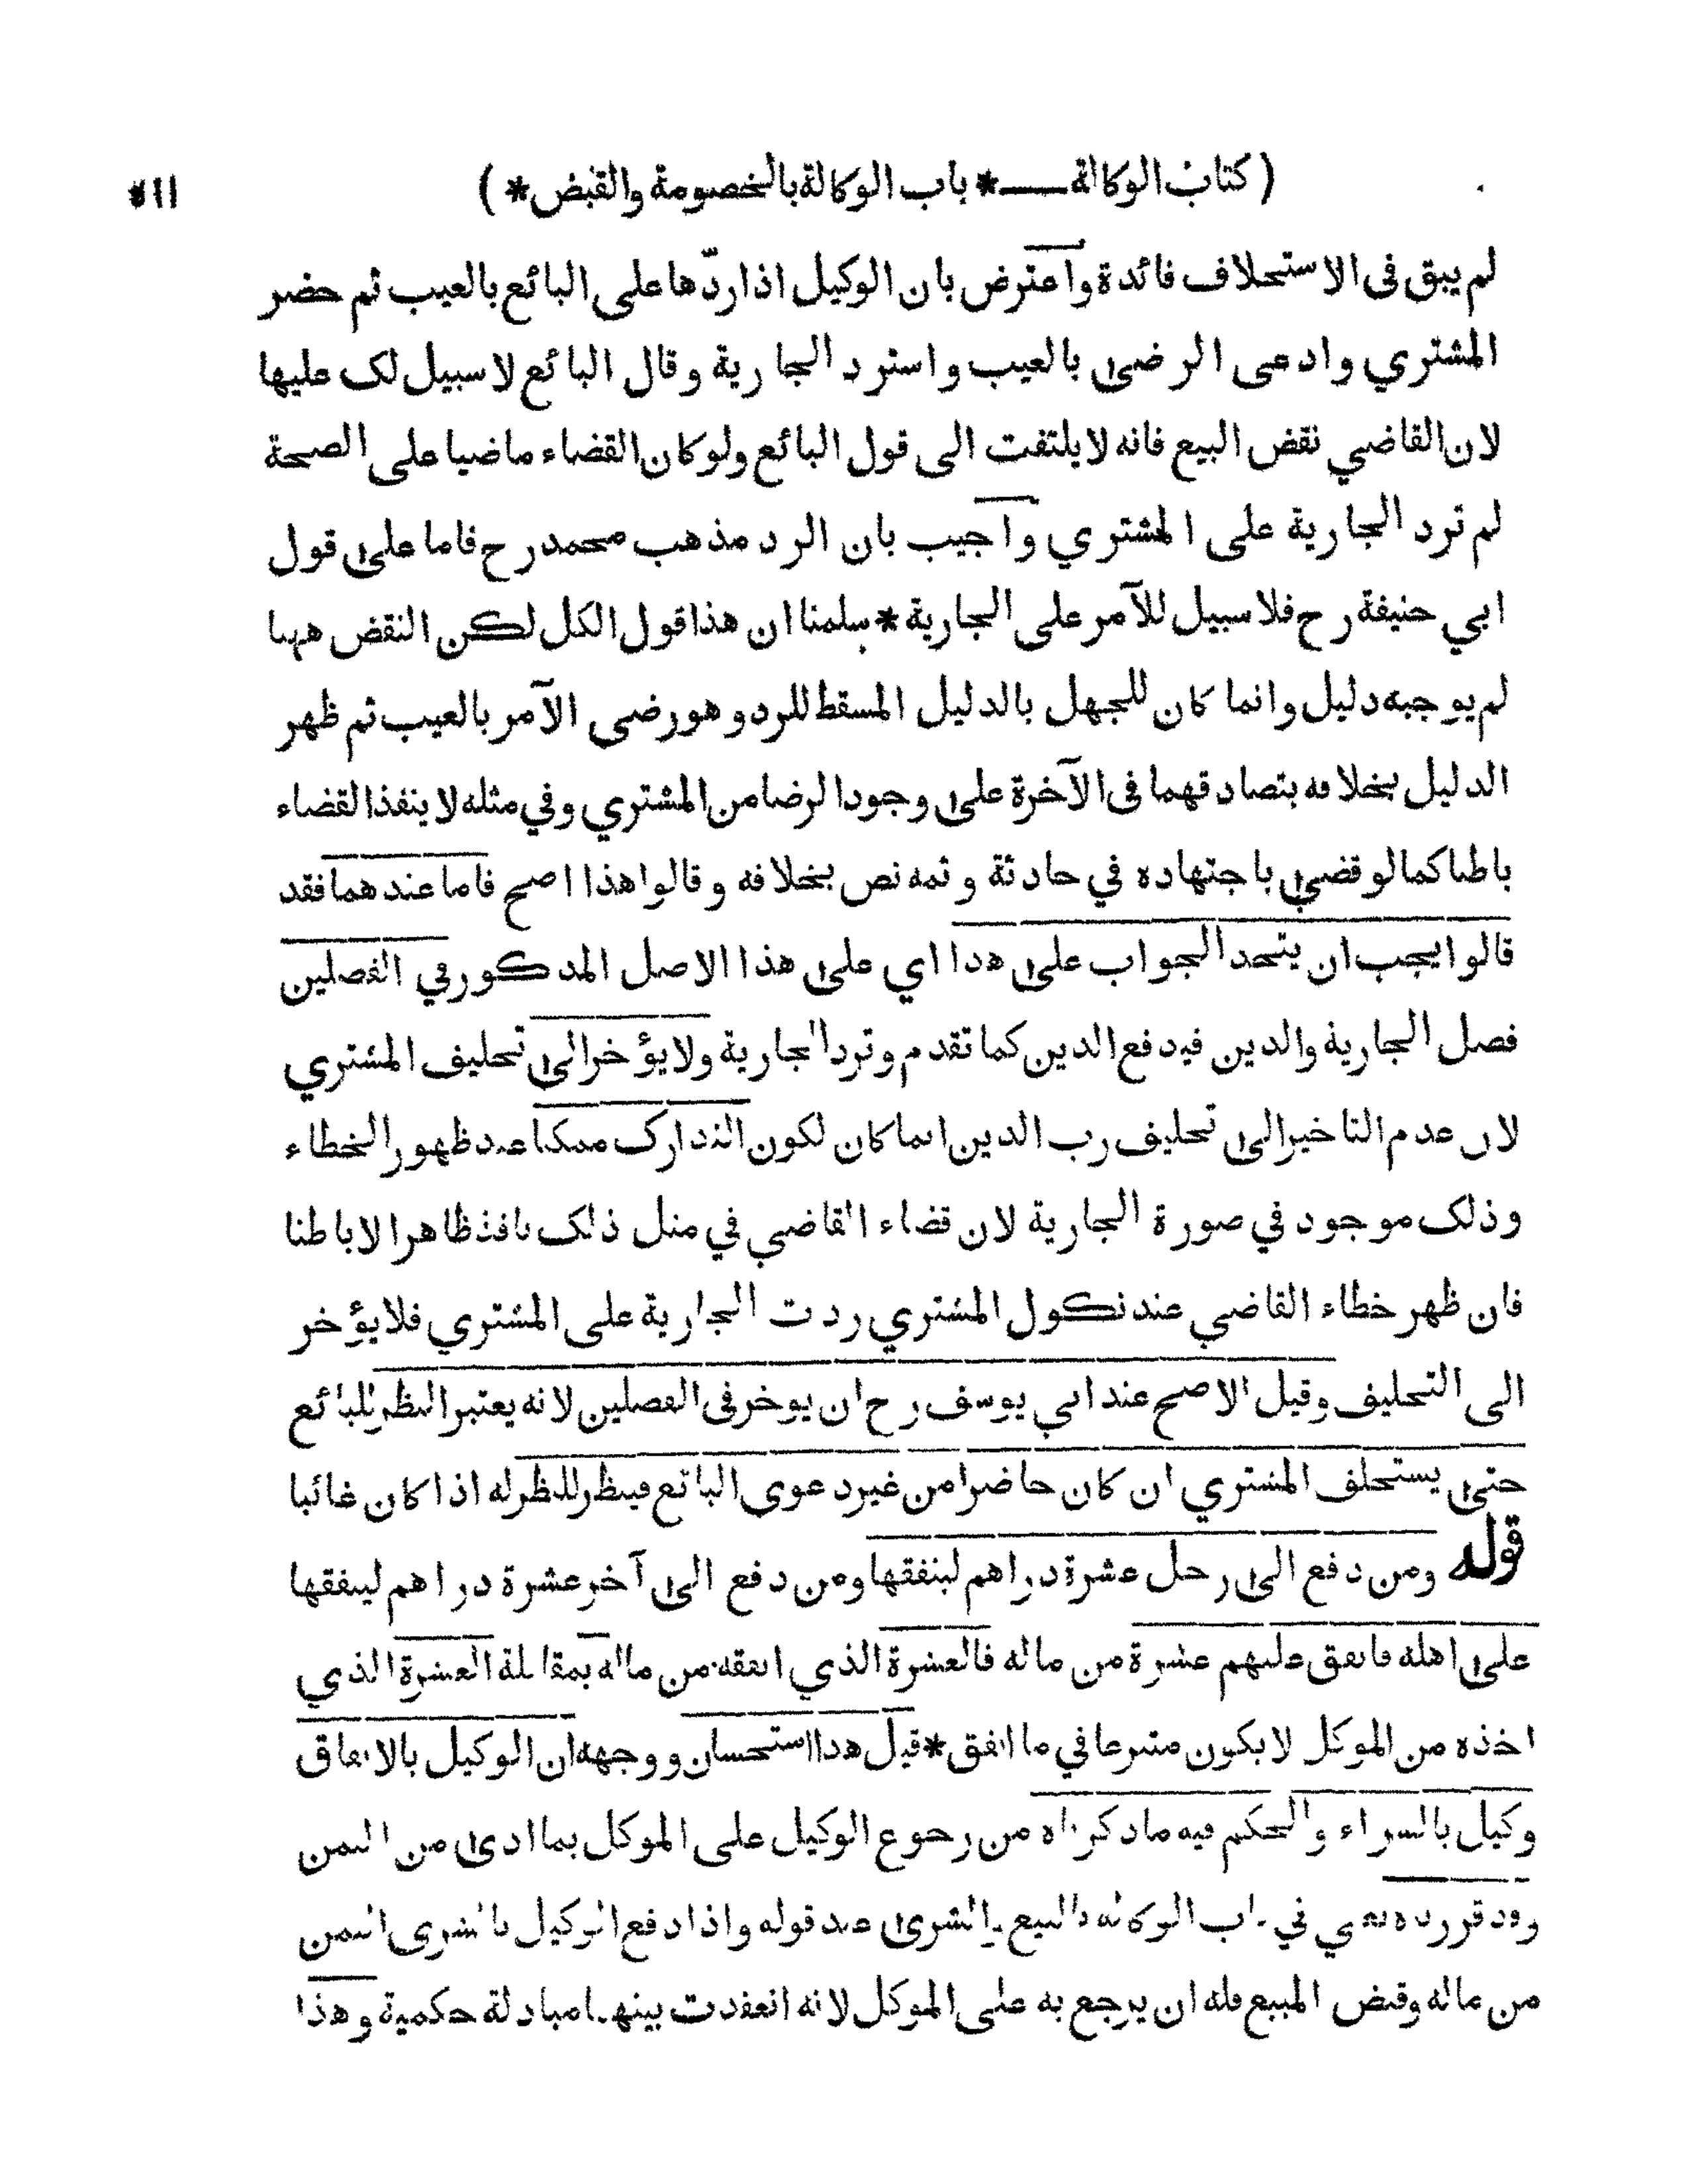 ( كتاب الوكالة ـــ * باب الوكالة بالخصومة والقبض * )
لم يبق فى الاستحلاف فائدة واعترض بان الوكيل اذا ردّها على البائع بالعيب ثم حضر
المشتري وادعى الرضى بالعيب واسترد الجارية وقال البائع لا سبيل لك عليها
لان القاضي نقض البيع فانه لا يلتفت الى قول البائع ولو كان القضاء ماضيا على الصحة
لم ترد الجارية على المشتري واجيب بان الرد مذهب محمد رح فاما على قول
ابي حنيفة رح فلا سبيل للآمر على الجارية * سلمنا ان هذا قول الكل لكن النقض ههنا
لم يوجبه دليل وانما كان للجهل بالدليل المسقط للرد وهو رضى الآمر بالعيب ثم ظهر
الدليل بخلافه بتصادقهما فى الآخرة على وجود الرضا من المشتري وفي مثله لا ينفذ القضاء
باطنا كما لو قضى باجتهاده في حادثة وثمه نص بخلافه وقالوا هذا اصح فاما عندهما فقد
قالوا يجب ان يتحد الجواب على هذا اي على هذا الاصل المذكور في الفصلين
فصل الجارية والدين فيدفع الدين كما تقدم وترد الجارية ولا يؤخر الى تحليف المشتري
لان عدم التاخير الى تحليف رب الدين انما كان لكون التدارك ممكنا عند ظهور الخطاء
وذلك موجود في صورة الجارية لان قضاء القاضي في مثل ذلك نافذ ظاهرا لا باطنا
فان ظهر خطاء القاضي عند نكول المشتري ردت الجارية على المشتري فلا يؤخر
الى التحليف وقيل الاصح عند ابي يوسف رح ان يوخر فى الفصلين لانه يعتبر النظر للبائع
حتى يستحلف المشتري ان كان حاضرا من غير دعوى البائع فينظر للنظر له اذا كان غائبا
قوله ومن دفع الى رجل عشرة دراهم لينفقها ومن دفع الى آخر عشرة دراهم لينفقها
على اهله فانفق عليهم عشرة من ماله فالعشرة الذي انفقه من ماله بمقابلة العشرة الذي
اخذه من الموكل لا يكون متبرعا في ما انفق * قيل هذا استحسان ووجهه ان الوكيل بالانفاق
وكيل بالشراء والحكم فيه ما ذكرناه من رجوع الوكيل على الموكل بما ادى من الثمن
وقد قررناه يعني في باب الوكالة بالبيع والشرى عند قوله واذا دفع الوكيل بالشرى الثمن
من ماله وقبض المبيع فله ان يرجع به على الموكل لانه انعقدت بينهما مبادلة حكمية وهذا